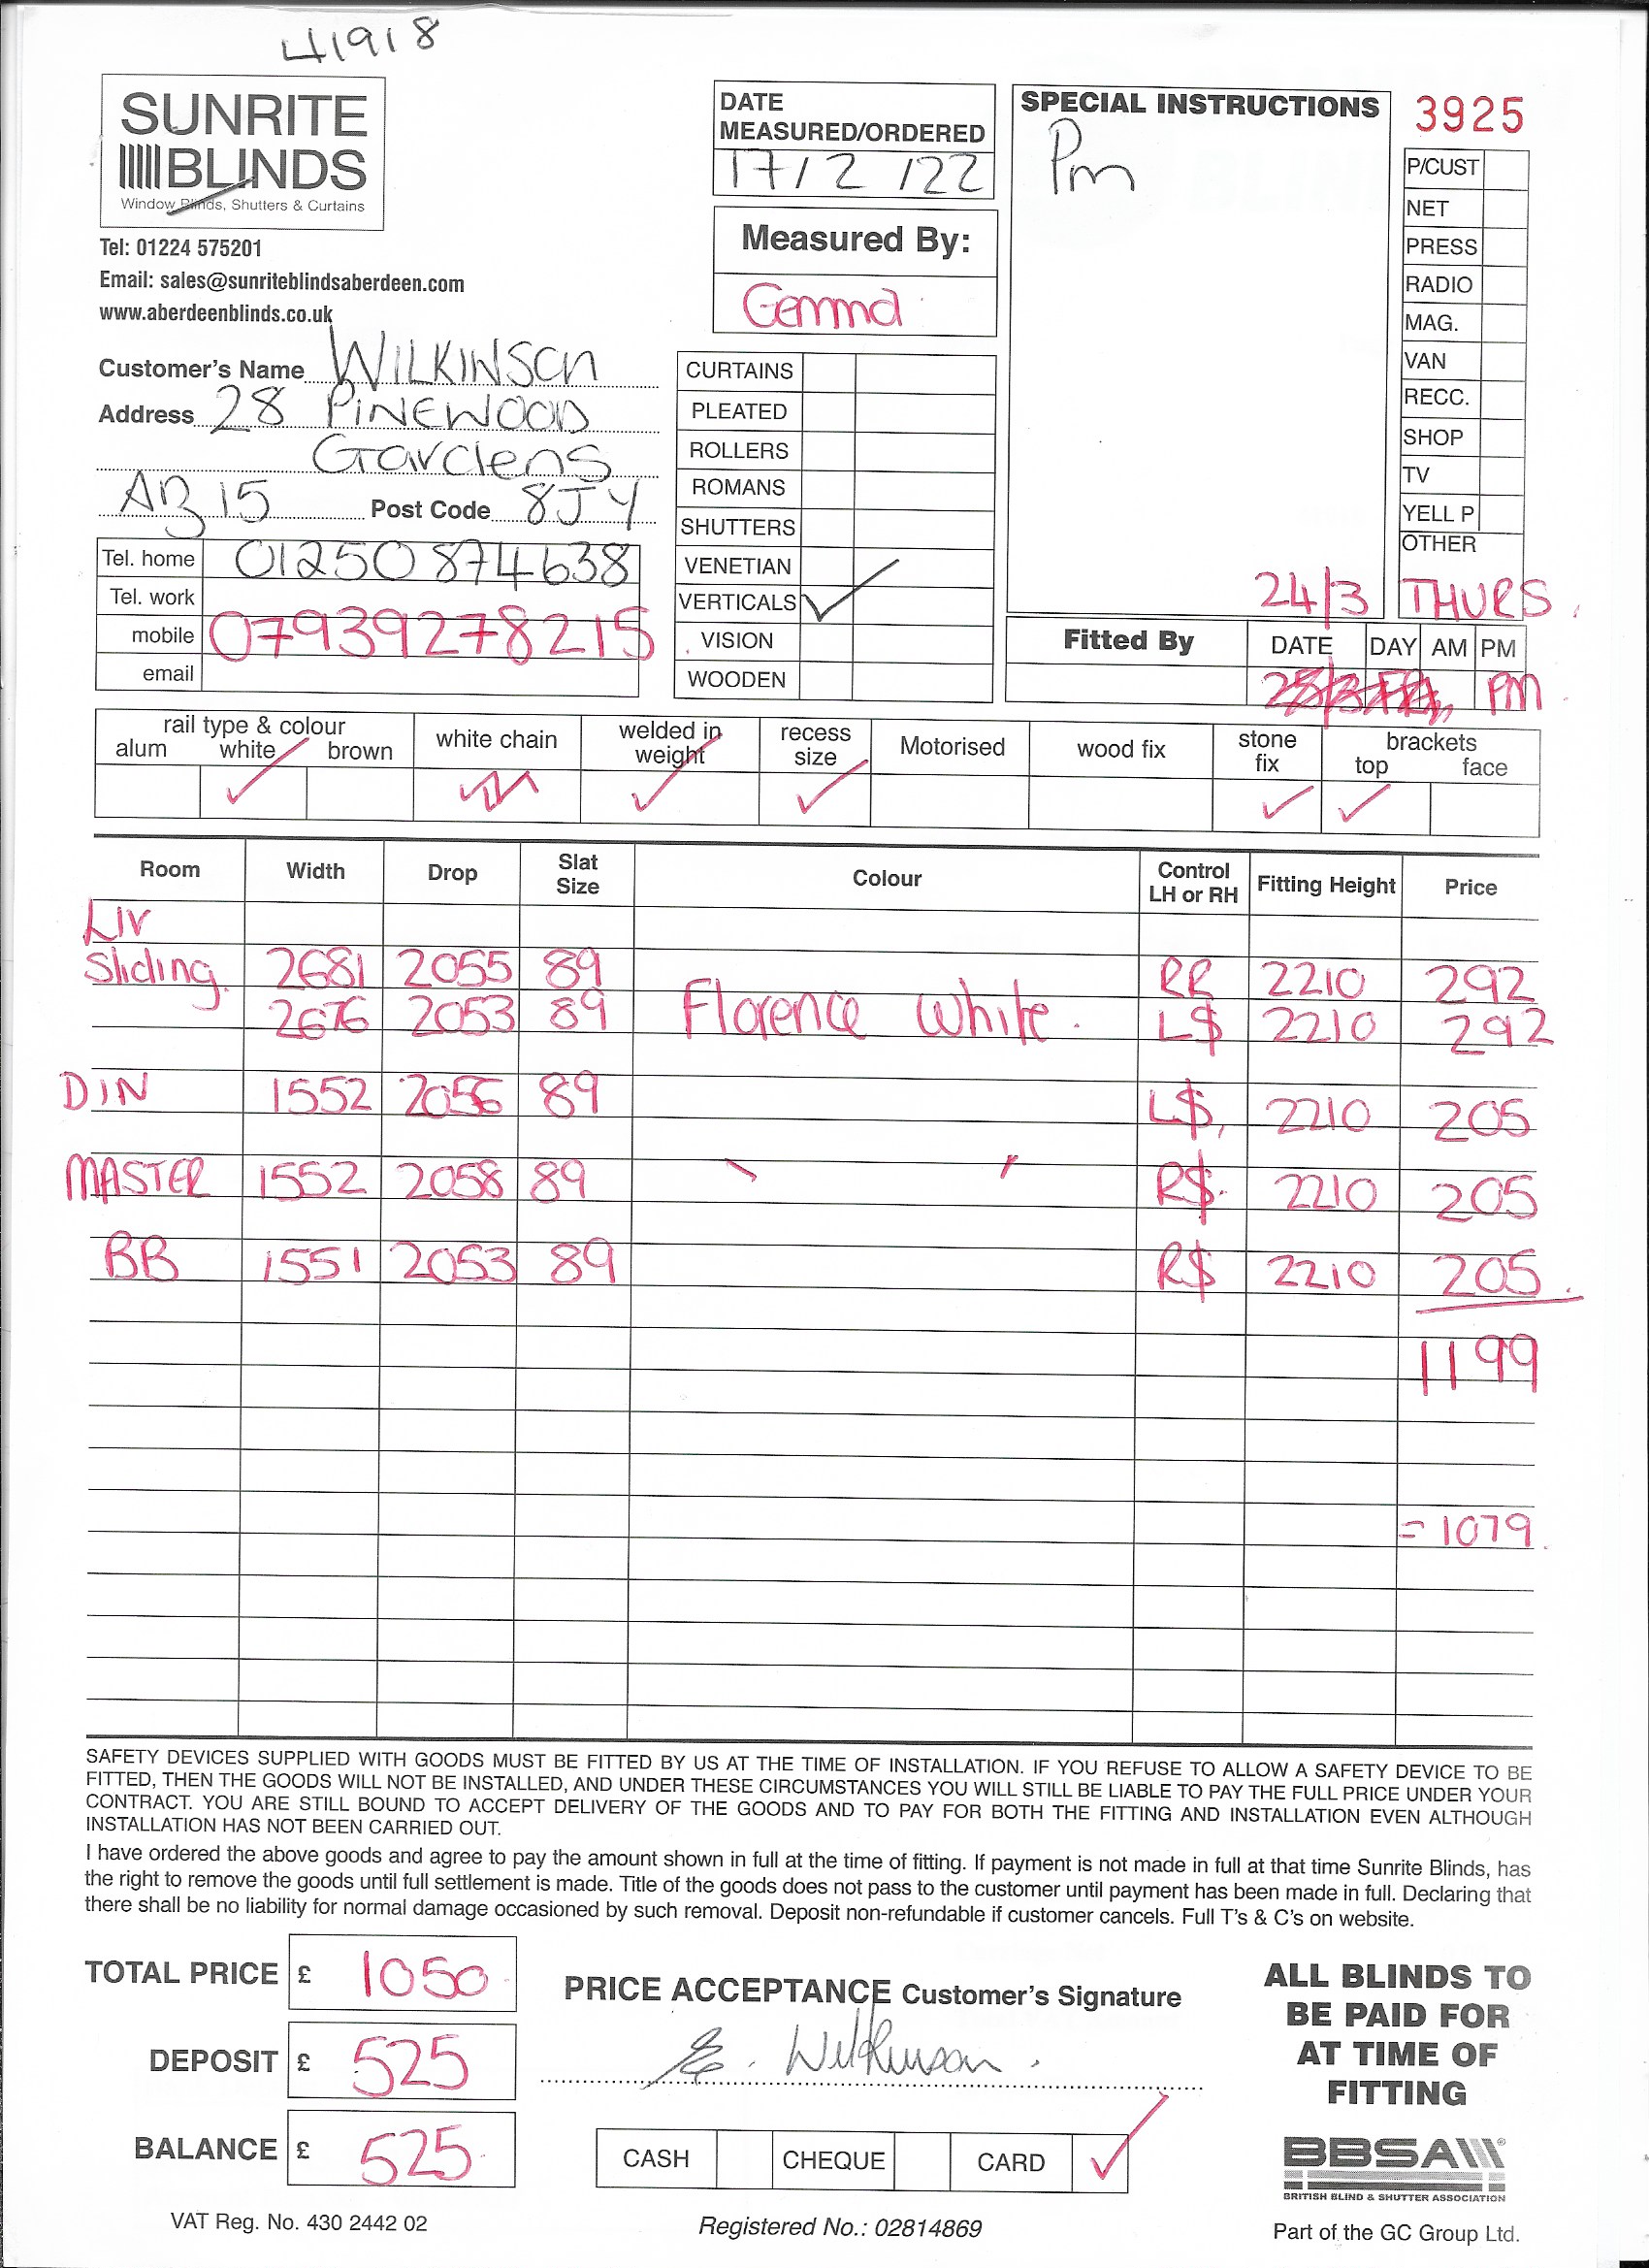 41918
SUNRITE
BLINDS
Window Blinds, Shutters & Curtains
Tel: 01224 575201
Email: sales@sunriteblindsaberdeen.com
www.aberdeenblinds.co.uk
DATE
MEASURED/ORDERED
17/2/22
Measured By:
Gemma
SPECIAL INSTRUCTIONS
Pm
3925
P/CUST
NET
PRESS
RADIO
MAG.
VAN
RECC.
SHOP
TV
YELL P
OTHER
Customer's Name WILKINSON
Address 28 PINEWOOD
Gardens
AB15 Post Code 8JY
Tel. home 01250 874638
Tel. work
mobile 07939278215
email
CURTAINS
PLEATED
ROLLERS
ROMANS
SHUTTERS
VENETIAN
VERTICALS ✓
VISION
WOODEN
24/3 THURS.
Fitted By DATE DAY AM PM
PM
rail type & colour
alum white brown
white chain
welded in
weight
recess
size
Motorised
wood fix
stone
fix
brackets
top face
Room Width Drop Slat Size Colour Control LH or RH Fitting Height Price
Liv
Sliding. 2681 2055 89 RR 2210 292
2676 2053 89 Florence White. L$ 2210 292
DIN 1552 2056 89 L$, 2210 205
MASTER 1552 2058 89 R$. 2210 205
BB 1551 2053 89 R$ 2210 205.
1199
= 1079.
SAFETY DEVICES SUPPLIED WITH GOODS MUST BE FITTED BY US AT THE TIME OF INSTALLATION. IF YOU REFUSE TO ALLOW A SAFETY DEVICE TO BE
FITTED, THEN THE GOODS WILL NOT BE INSTALLED, AND UNDER THESE CIRCUMSTANCES YOU WILL STILL BE LIABLE TO PAY THE FULL PRICE UNDER YOUR
CONTRACT. YOU ARE STILL BOUND TO ACCEPT DELIVERY OF THE GOODS AND TO PAY FOR BOTH THE FITTING AND INSTALLATION EVEN ALTHOUGH
INSTALLATION HAS NOT BEEN CARRIED OUT.
I have ordered the above goods and agree to pay the amount shown in full at the time of fitting. If payment is not made in full at that time Sunrite Blinds, has
the right to remove the goods until full settlement is made. Title of the goods does not pass to the customer until payment has been made in full. Declaring that
there shall be no liability for normal damage occasioned by such removal. Deposit non-refundable if customer cancels. Full T's & C's on website.
TOTAL PRICE £ 1050
DEPOSIT £ 525
BALANCE £ 525
PRICE ACCEPTANCE Customer's Signature
Wilkinson.
CASH CHEQUE CARD ✓
ALL BLINDS TO
BE PAID FOR
AT TIME OF
FITTING
BBSA
BRITISH BLIND & SHUTTER ASSOCIATION
VAT Reg. No. 430 2442 02
Registered No.: 02814869
Part of the GC Group Ltd.